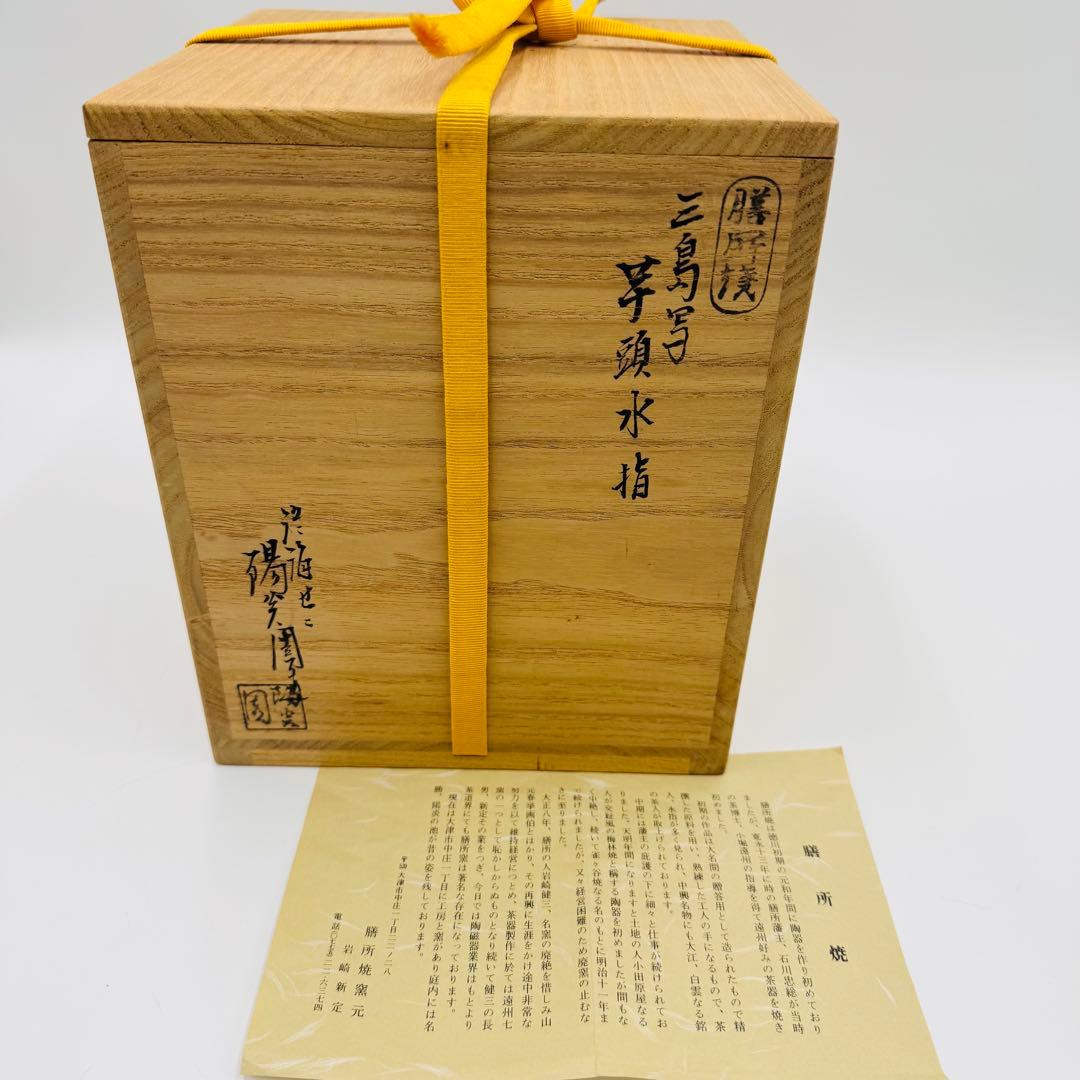 膳所焼
三島写
芋頭水指
陽炎園
陽炎園
膳所焼
膳所焼は徳川初期の元和年間に陶器を作り初めており
ましたが、寛永十三年に時の膳所藩主、石川忠総が当時
の茶博士、小堀遠州の指導を得て遠州好みの茶器を焼き
初めました。
初期の作品は大名間の贈答用として造られたもので精
撰した原料を用い、熟練した工人の手になるもので、茶
人、水指が多く見られ、中興名物にも大江、白雲なる銘
の茶入が取上げられております。
中期には藩主の庇護の下に細々と仕事が続けられてお
りました。天明年間になりますと土地の人小田原屋なる
人が交趾風の梅林焼と称する陶器を初めましたが間もな
く中絶し、続いて雀ヶ谷焼なる名のもとに明治十一年ま
で続けられましたが、又々経営困難のため廃窯の止むな
きに至りました。
大正八年、膳所の人岩崎健三、名窯の廃絶を惜しみ山
元春挙画伯とはかり、その再興に生涯をかけ途中非常な
努力を以て維持経営につとめ、茶器製作に於ては遠州七
窯の一つとして恥かしからぬものとなり続いて健三の長
男、新定その業をつぎ、今日では陶磁器業界はもとより
茶道界にても膳所窯は著名な存在になっております。
現在は大津市中庄一丁目に工房と窯があり庭内には名
勝、陽炎の池が昔の姿を残しております。
大津市中庄一丁目二二ノ二八
膳所焼窯元
岩崎新定